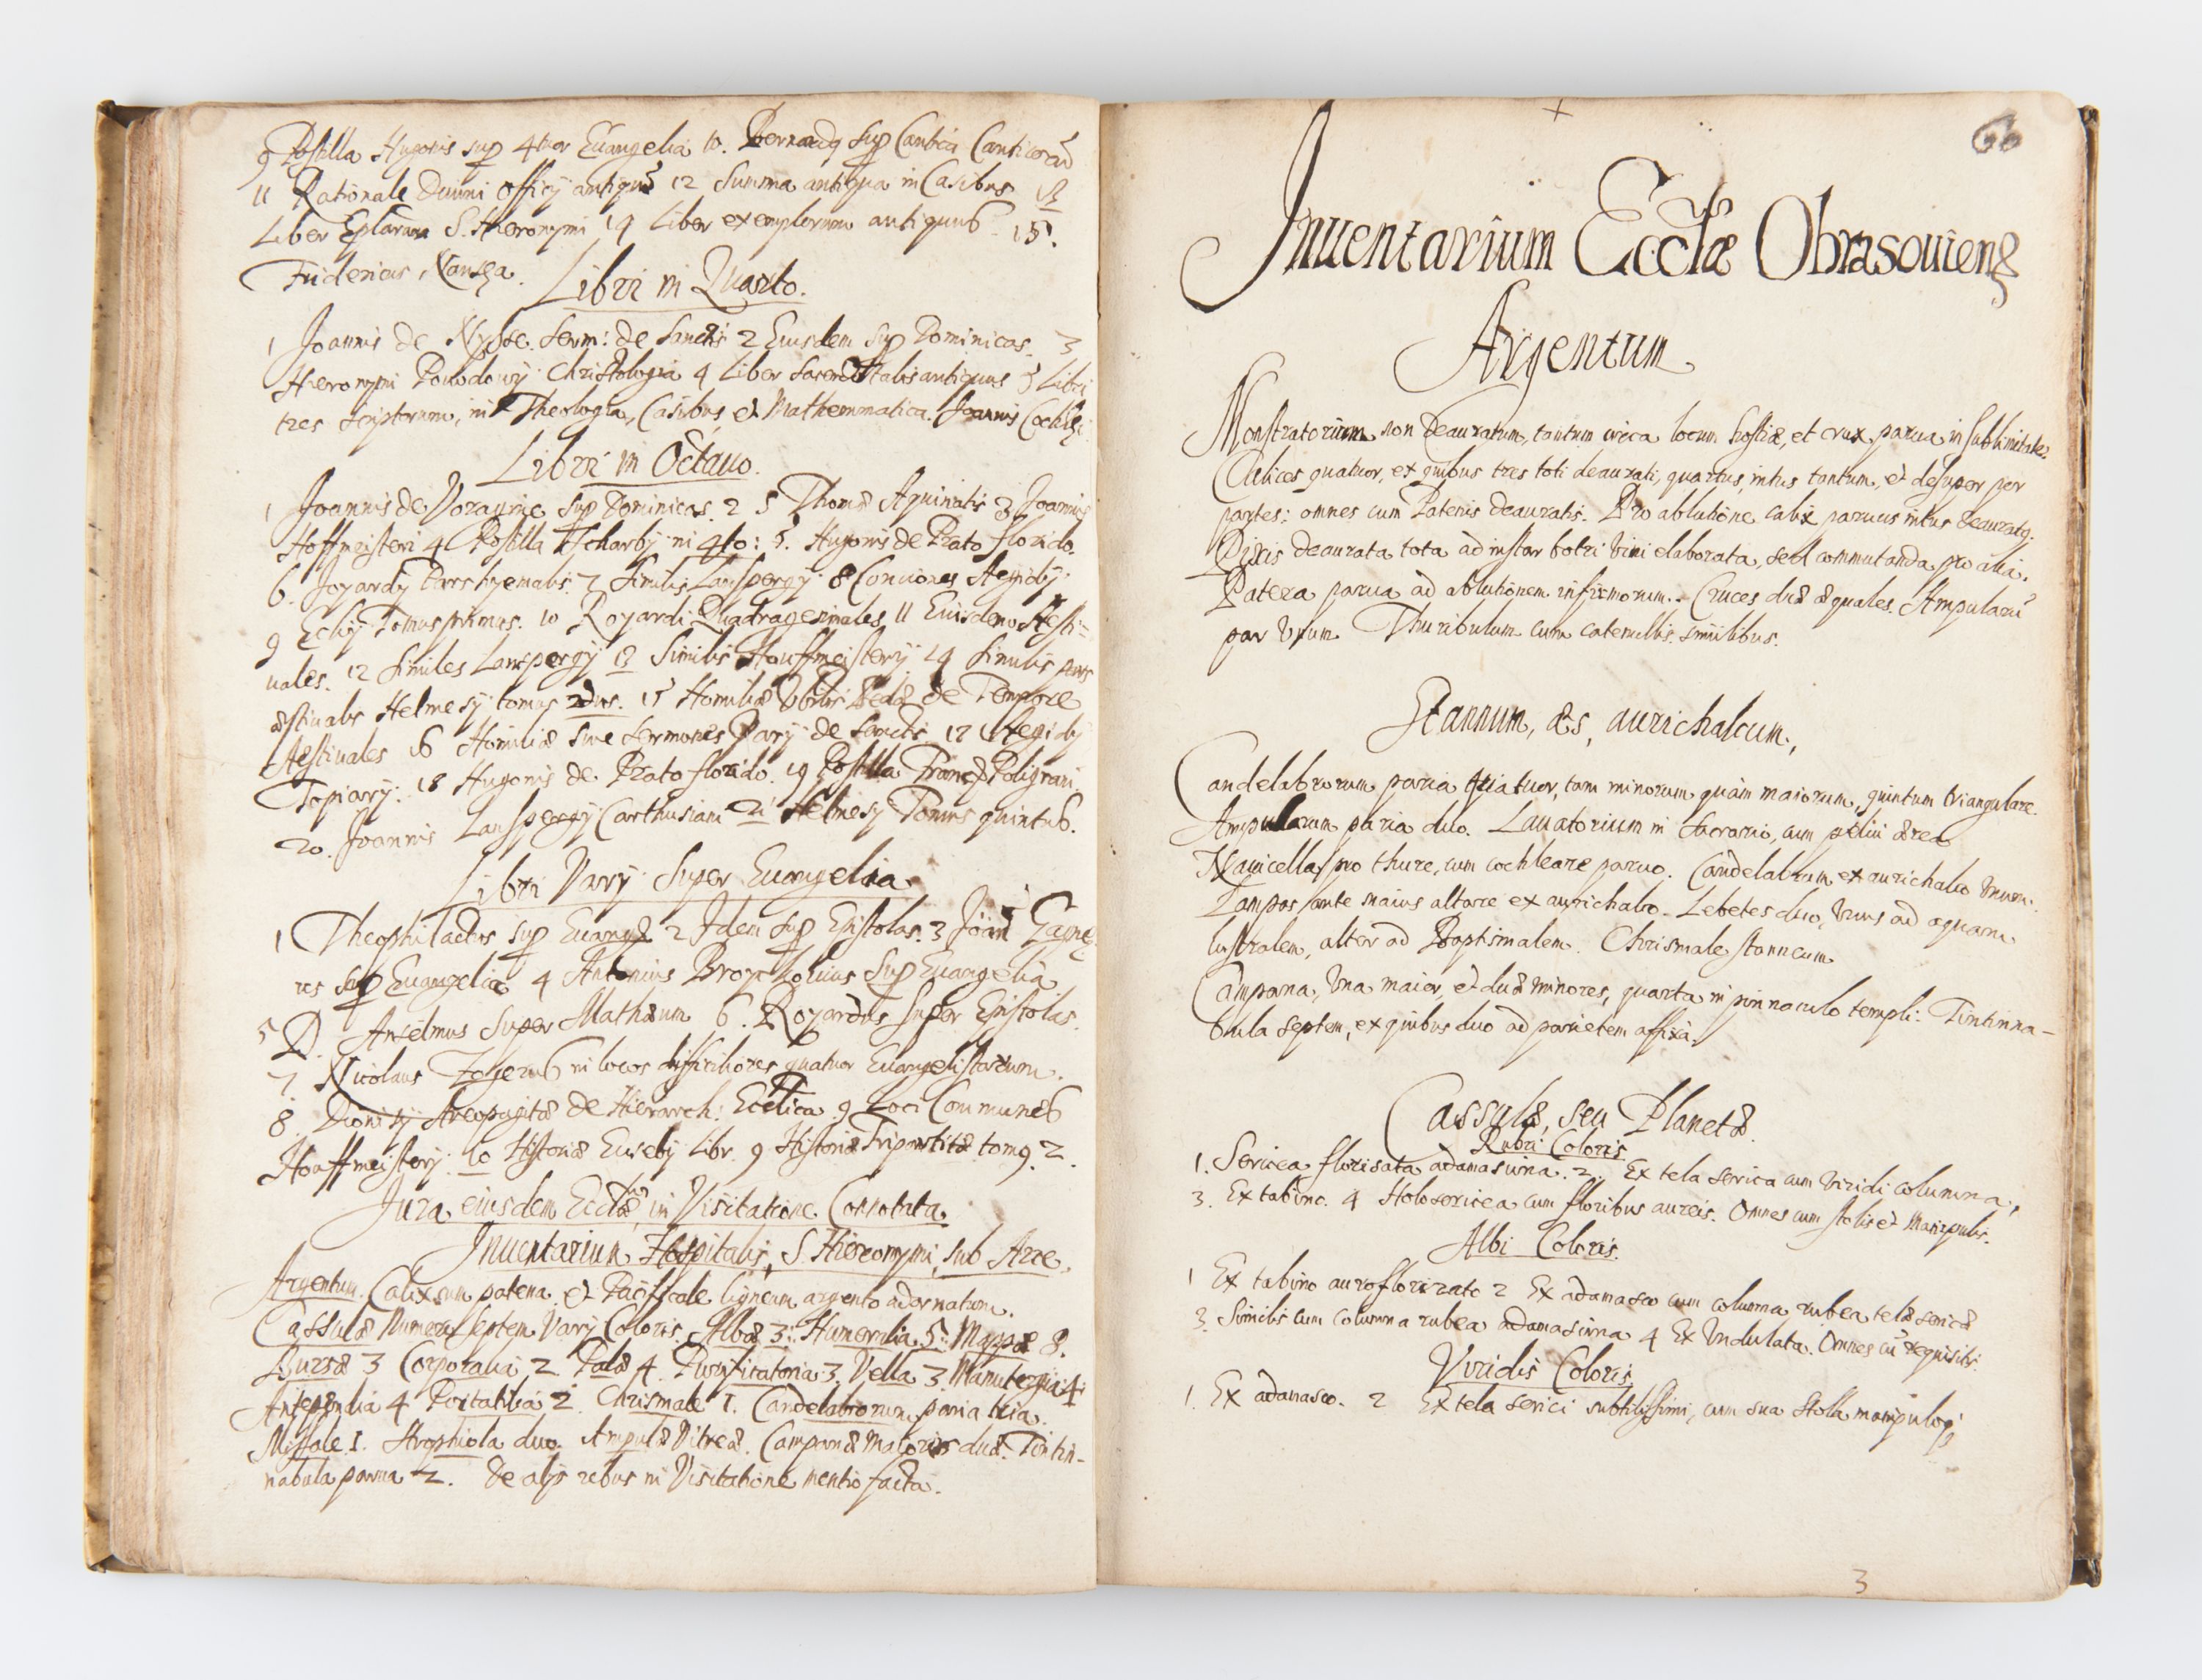 9 Postilla Hugonis sup 4tuor Euangelia 10. Bernardq sup Cantica Canticorũ
11 Rationale Diuini Officij antiquũ 12 Summa antiqua in Casibus 13
Liber Eplarum S. Hieronymi 14 Liber exemplorum antiquus 15.
Fridericus Nausea.
Libri in Quarto.
1 Joannis de Nysse Serm: de Sanctis 2 Eiusdem sup Dominicas. 3
Hieronymi Powodowij Christologia 4 Liber Sacerdotalis antiquus 5 Libri
tres scriptorum, in Theologia, Casibus, et Mathemmatica. Joannis Cochlæi
Libri in Octauo.
1 Joannis de Voragine sup Dominicas. 2 S Thomæ Aquinatis 3 Joannis
Hoffmeisteri 4 Postilla Scharbij in 4to: 5. Hugonis de Prato florido.
6. Royardij Pars hyemalis. 7 Similis Lanspergij 8 Conciones Aegidij
9 Eckij Tomus primus. 10 Royardi Quadragesimales 11 Eiusdem Aesti=
uales. 12 Similes Lanspergij 13 Similis Houffmeisterij 14 Similis pars
æstiualis Helmesij tomus 2dus. 15 Homiliæ Vblis Bedæ de Tempore
Aestiuales 16 Homiliæ siue Sermones Rarij de Sanctis 17 Aegidij
Topiarij. 18 Hugonis de Prato florido. 19 Postilla Franc. Poligrani.
20. Joannis Lanspergij Carthusiani 21 Helmesij Tomus quintus.
Libri Varij Super Euangelia
1 Theophilactus sup Euang. 2 Idem sup Epistolas. 3 Joan Gagne
us sup Euangelia 4 Antonius Broyckouius Sup Euangelia
5 D. Anselmus Super Mathæum 6. Royardus Super Epistolas.
7. Nicolaus Zegerus in locos difficiliores quatuor Euangelistarum.
8. Dionisij Areopagitæ de Hierarch: Ecclica 9 Loci Communes
Houffmeisterij. 10 Historiæ Eusebij Libr. 9 Historiæ Tripartitæ tomq. 2.
Jura eiusdem Ecclæ in Visitatione Connotata.
Inuentarium Hospitalis, S. Hieronymi, sub Arce.
Argentum. Calix cum patena et Pacificale ligneum argento adornatum.
Cassulæ Numero Septem Varij Coloris. Albæ 3: Humeralia 5: Mappæ 8.
Bursæ 3 Corporalia 2 Palæ 4. Purificatoria 3. Vella 3. Manutergia 4
Antepedia 4 Portatilia 2. Chrismale 1. Candelabrorum paria tria.
Missale 1. Strophiola duo. Ampulæ Vitreæ. Campanæ Maiores duæ. Tintin-
nabula parua 2. De alijs rebus in Visitatione mentio facta.
66
Inuentarium Ecclæ Obrasouiens
Argentum
Monstratorium non deauratum, tantum circa locum hostiæ, et crux parua in sublimitate.
Calices quatuor, ex quibus tres toti deaurati, quartus, intus tantum, et desuper per
partes: omnes cum Patenis deauratis. Pro ablutione calix paruus intus deauratq.
Pixis deaurata tota ad instar botri vini elaborata, sed commutanda pro alia.
Patera parua ad ablutionem infirmorum. Cruces duæ æquales. Ampularũ
par Vnum. Thuribulum cum catenullis similibus.
Stannum, æs, aurichalcum,
Candelabrorum paria quatuor, tam minorum quàm maiorum, quintum triangulare.
Ampularum paria duo. Lauatorium in Sacrario, cum pelui ærea
Nauicella pro thure, cum cochleare paruo. Candelabrum ex aurichalco Vnum.
Lampas ante maius altare ex aurichalco. Lebetes duo, Vnus ad aquam
lustralem, alter ad Baptismalem. Chrismale stanneum
Campana, Vna maior, et duæ minores, quarta in pinnaculo templi: Tintinna-
bula septem, ex quibus duo ad parietem affixa.
Cassulæ, seu Planetæ.
Rubri Coloris
1. Sericea florisata adamascina. 2. Ex tela serica cum viridi columna,
3. Ex tabino. 4 Holosericea cum floribus aureis. Omnes cum stolis et Manipulis.
Albi Coloris.
1 Ex tabino auroflorizato 2 Ex adamasco cum columna rubea telæ sericæ
3. Similis cum columna rubea adamascina 4 Ex Vndulata. Omnes cũ requisitis.
Viridis Coloris
1. Ex adamasco. 2 Ex tela serici subtilissimi, cum sua stolla manipuloq;
3